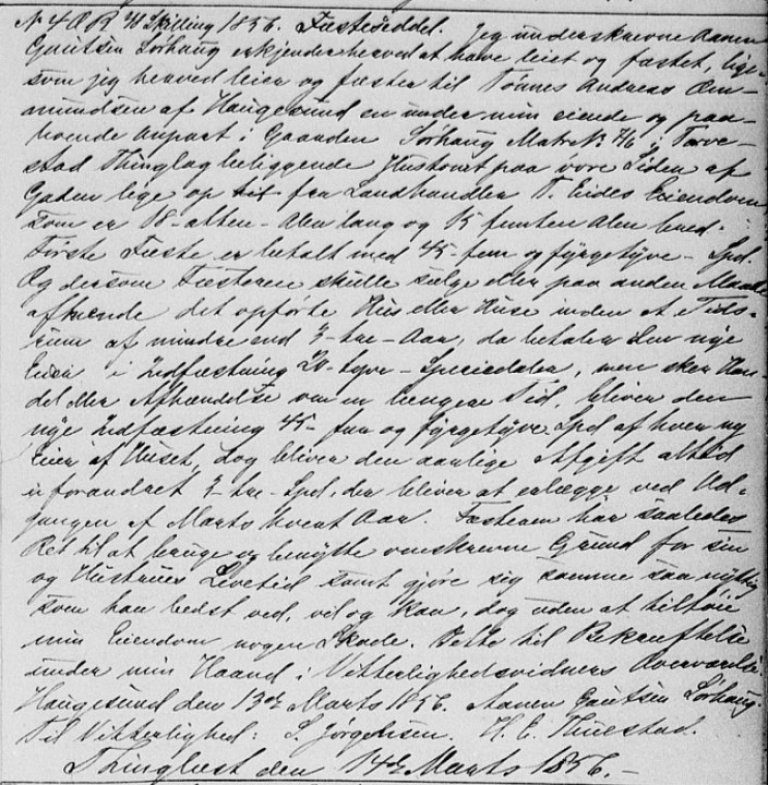 N 4 O R 48 Skilling 1856. Fæsteseddel. Jeg underskrevne Aanen
Gautsen Sørhaug erkjender herved at have leiet og fæstet, lige-
som jeg herved leier og fæster til Tønnes Andreas Om-
mundsen af Haugesund en under min eiende og paa-
boende Anpart i Gaarden Sørhaug Matr. N. i Torve-
stad Thinglag beliggende Hustomt paa øvre Siden af
Gaden lige op til fra Landhandler T. Eides Eiendom
som er 18 - atten - Alen lang og 15 femten Alen bred.
Første Fæste er betalt med 45 - fem og fyrgetyve - Spd.
Og dersom Fæsteren skulle sælge eller paa anden Maade
afhænde det opførte Hus eller Huse inden et Tids-
rum af mindre end 3 - tre - Aar, da betaler den nye
Eier i Indfæstning 20 - tyve - Speciedaler, men sker Han-
del eller Afhændelse om en længere Tid, bliver den
nye Indfæstning 45 - fem og fyrgetyve Spd af hver ny
Eier af Huset, dog bliver den aarlige Afgift altid
uforandret 3 - tre - Spd, der bliver at erlægge ved Ud-
gangen af Marts hvert Aar. Fæsteren har saaledes
Ret til at bruge og benytte omskrevne Grund for sin
og Hustrues Levetid samt gjøre sig samme saa nyttig
som han bedst ved, vil og kan, dog uden at tilføie
min Eiendom nogen Skade. Dette til Bekræftelse
under min Haand i Vitterlighedsvidners Overværelse.
Haugesund den 13de Marts 1856. Aanen Gautsen Sørhaug.
Til Vitterlighed: S. Jørgensen. H. E. Thuestad.
Thinglæst den 14de Marts 1856. -